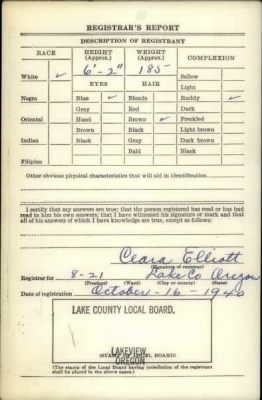 REGISTRAR'S REPORT
DESCRIPTION OF REGISTRANT
RACE HEIGHT (Approx.) WEIGHT (Approx.) COMPLEXION
White ✓ 6'-2" 185 Sallow
EYES HAIR Light
Negro Blue ✓ Blonde Ruddy ✓
Gray Red Dark
Oriental Hazel Brown ✓ Freckled
Brown Black Light brown
Indian Black Gray Dark brown
Bald Black
Filipino
Other obvious physical characteristics that will aid in identification
I certify that my answers are true; that the person registered has read or has had
read to him his own answers; that I have witnessed his signature or mark and that
all of his answers of which I have knowledge are true, except as follows:
Clara Elliott
(Signature of registrar)
Registrar for 8-21 Lake Co Oregon
(Precinct) (Ward) (City or county) (State)
Date of registration October-16-1940
LAKE COUNTY LOCAL BOARD.
LAKEVIEW
OREGON
(STAMP OF LOCAL BOARD)
(The stamp of the Local Board having jurisdiction of the registrant
shall be placed in the above space.)